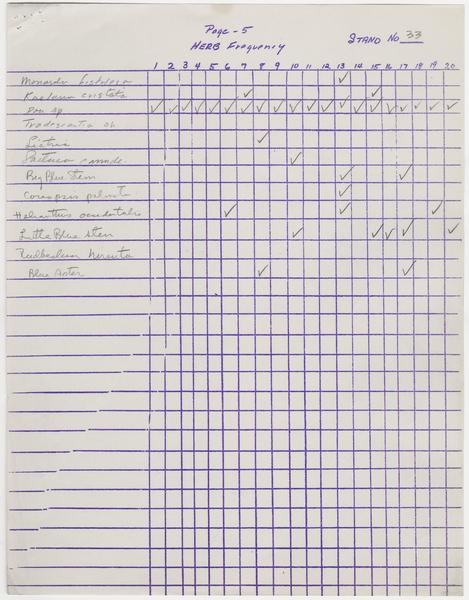 Page - 5
HERB Frequency
STAND No 33
1 2 3 4 5 6 7 8 9 10 11 12 13 14 15 16 17 18 19 20
Monarda fistulosa ✓
Koeleria cristata ✓ ✓
Poa sp ✓ ✓ ✓ ✓ ✓ ✓ ✓ ✓ ✓ ✓ ✓ ✓ ✓ ✓ ✓ ✓ ✓ ✓ ✓ ✓
Tradescantia oh
Liatris ✓
Lactuca ✓
Big Blue Stem ✓ ✓
Coreopsis palmata ✓
Helianthus occidentalis ✓ ✓ ✓
Little Blue Stem ✓ ✓ ✓ ✓ ✓
Rudbeckia hirsuta
Blue Aster ✓ ✓